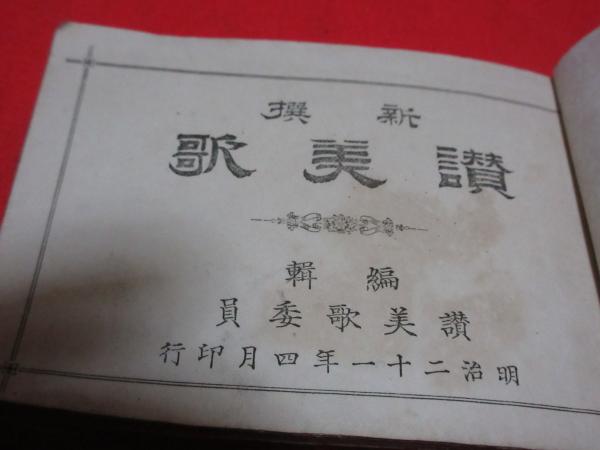 新撰
讃美歌
編輯
讃美歌委員
明治二十一年四月印行